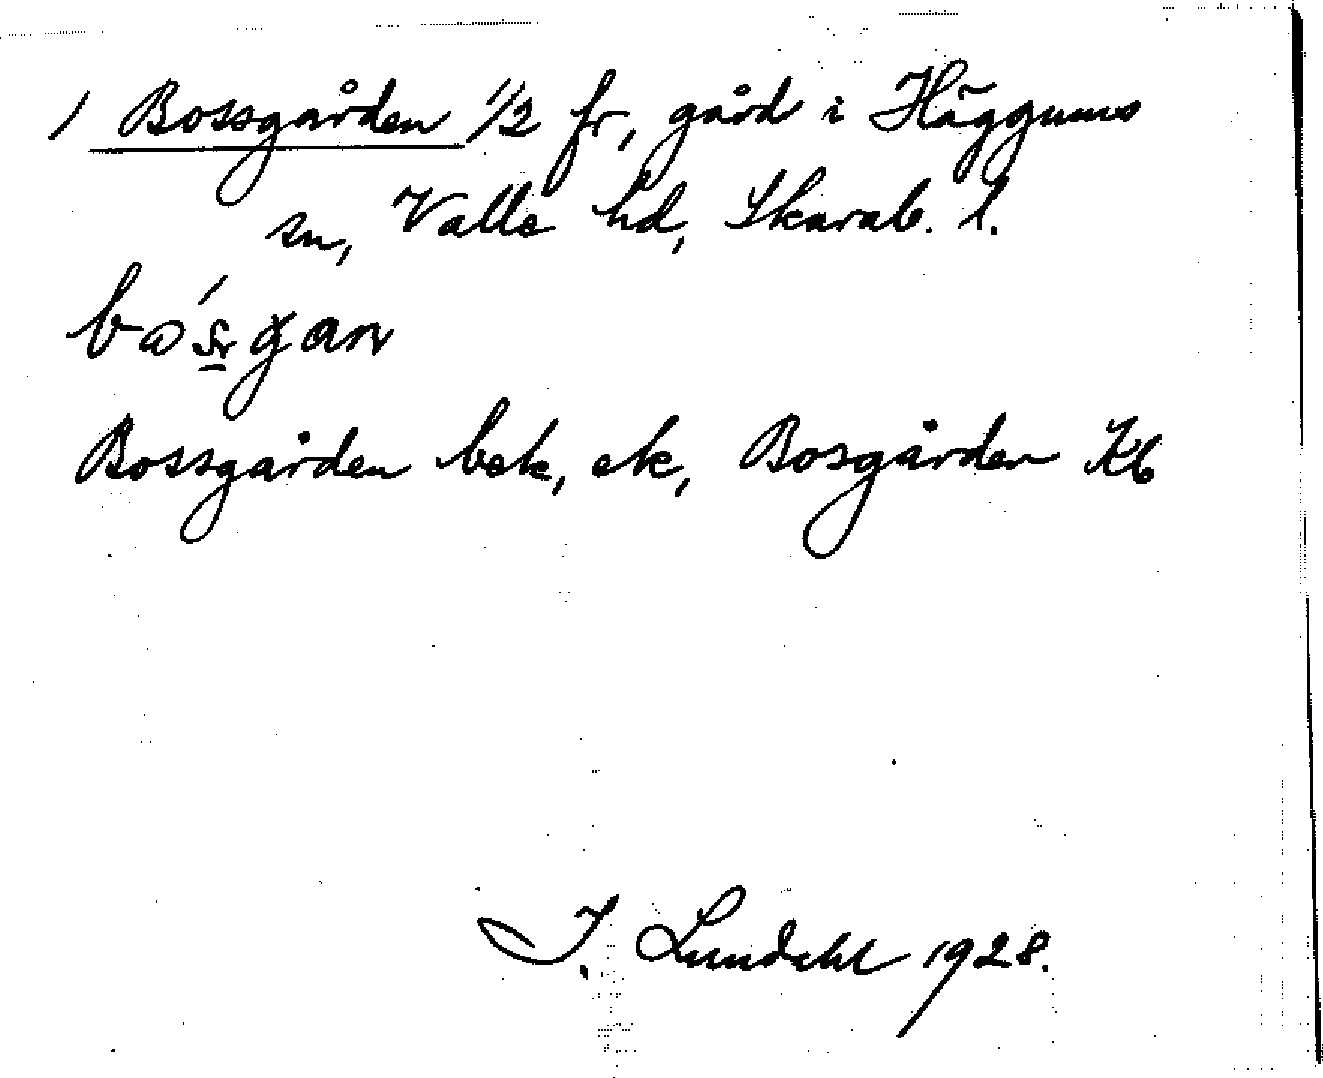 1 Bossgården 1/2 fr, gård i Häggums
sn, Valle hd, Skarab. l.
Bossgården bek, ek, Bosgården Kb
I. Lundahl 1928.